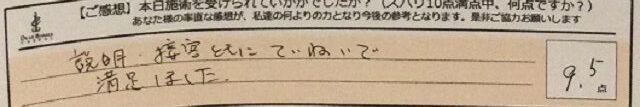 【ご感想】本日施術を受けられていかがでしたか?(ズバリ10点満点中、何点ですか?)
あなた様の率直な感想が、私達の何よりの力となり今後の参考となります。是非ご協力お願いします
説明・接客ともにていねいで
満足しました。
9.5点